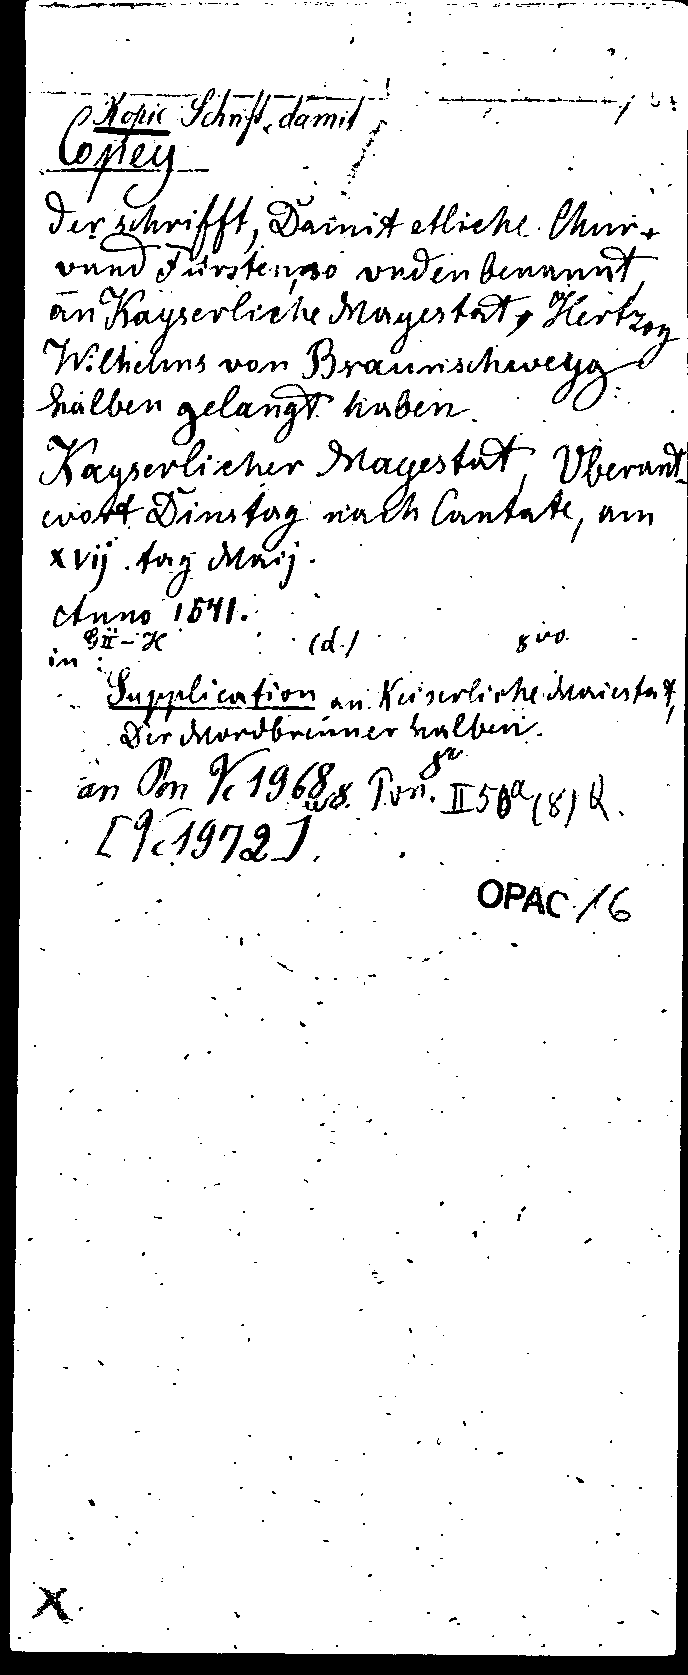 Kopie Schrift, damit
Copey
der schrifft, Damit etliche Chur-
vnnd Fürsten, so vnden benannt,
an Kayserliche Mayestat, Hertzog
Wilhelms von Braunschweyg
halben gelangt haben.
Kayserlicher Mayestat, Vberant-
wort Dinstag nach Cantate, am
xvij. tag Maij.
Anno 1541.
in: (d.) 8vo
Supplication an Keiserliche Maiestat,
Der Mordbrenner halben.
an Pon Vc 1968
Pon. II 50a (8) Q.
[Vc 1972].
OPAC 16
X